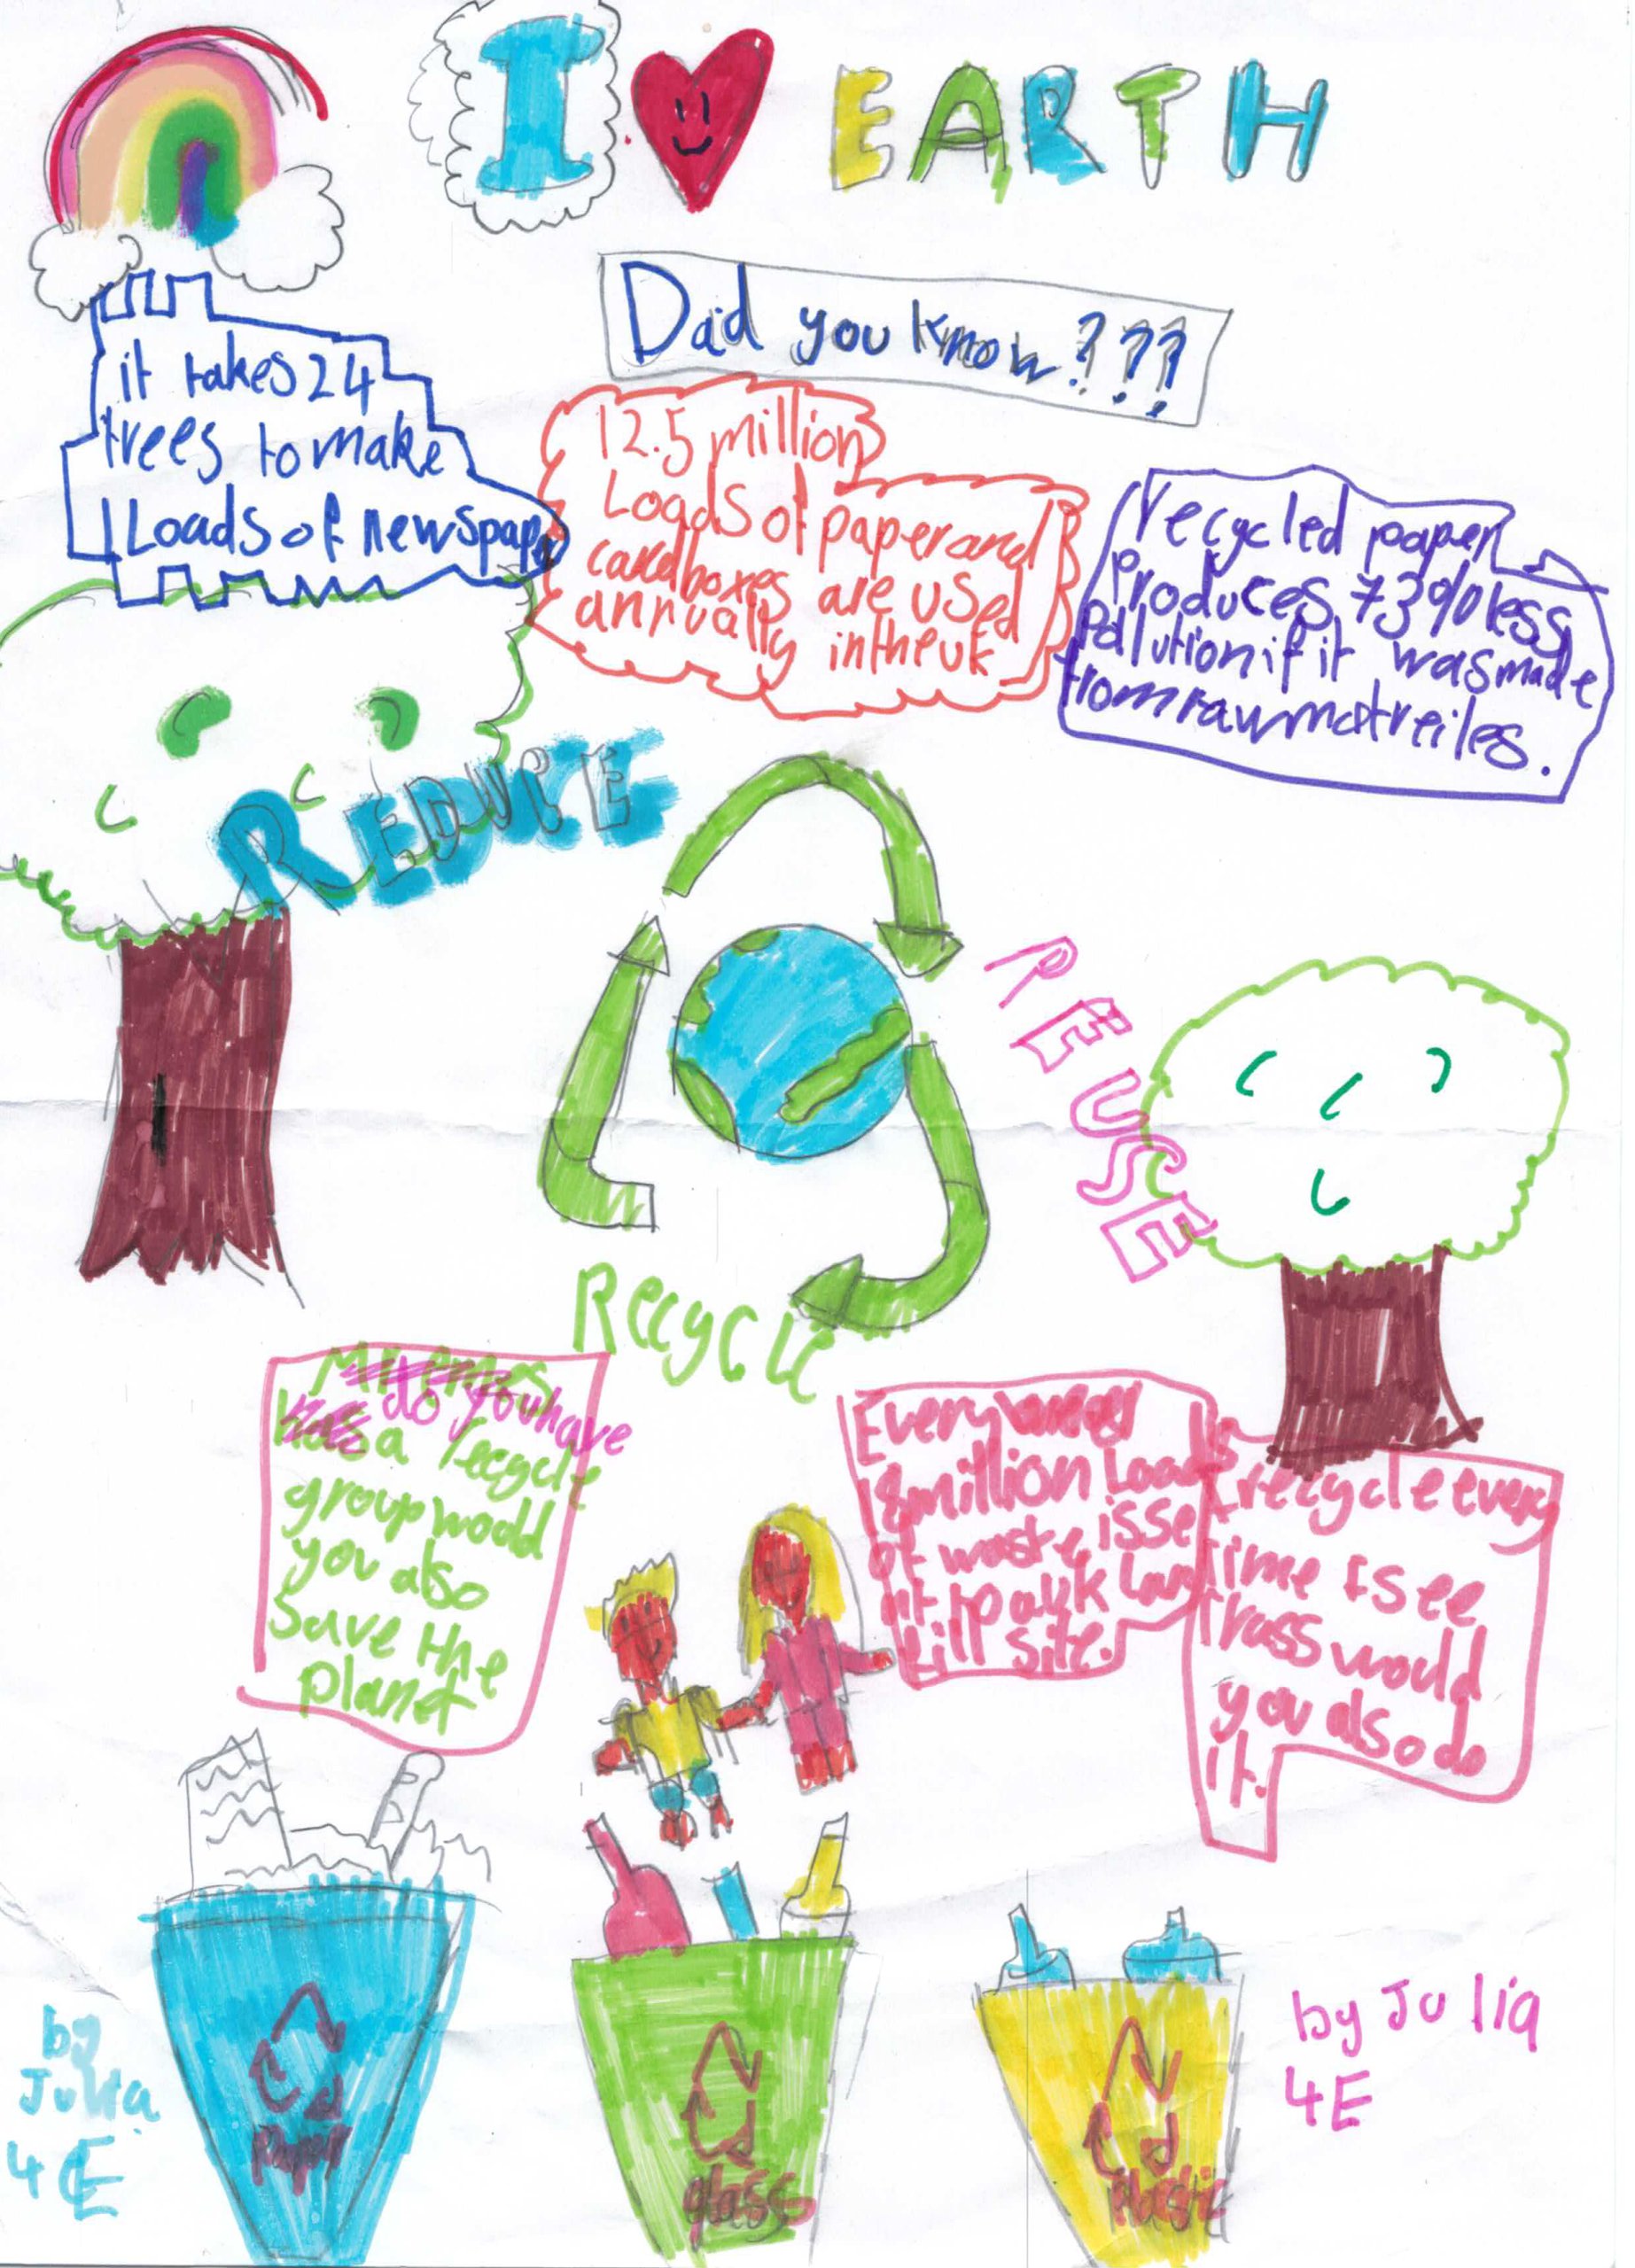 I EARTH
Did you know???
it takes 24
trees to make
1 Loads of newspape
12.5 million
Loads of paper and
cardboxes are used
annually in the uk
recycled paper
Produces 73% less
Pollution if it was made
from raw matreiles.
REDUCE
REUSE
Recycle
do you have
a recycle
group woold
you also
Save the
planet
Every
8 million Loads
of waste is se
nt to a uk Land
fill site.
I recycle every
time I see
trass woold
you also do
it.
by
Julia
4E
paper
glass
plastic
by Julia
4E